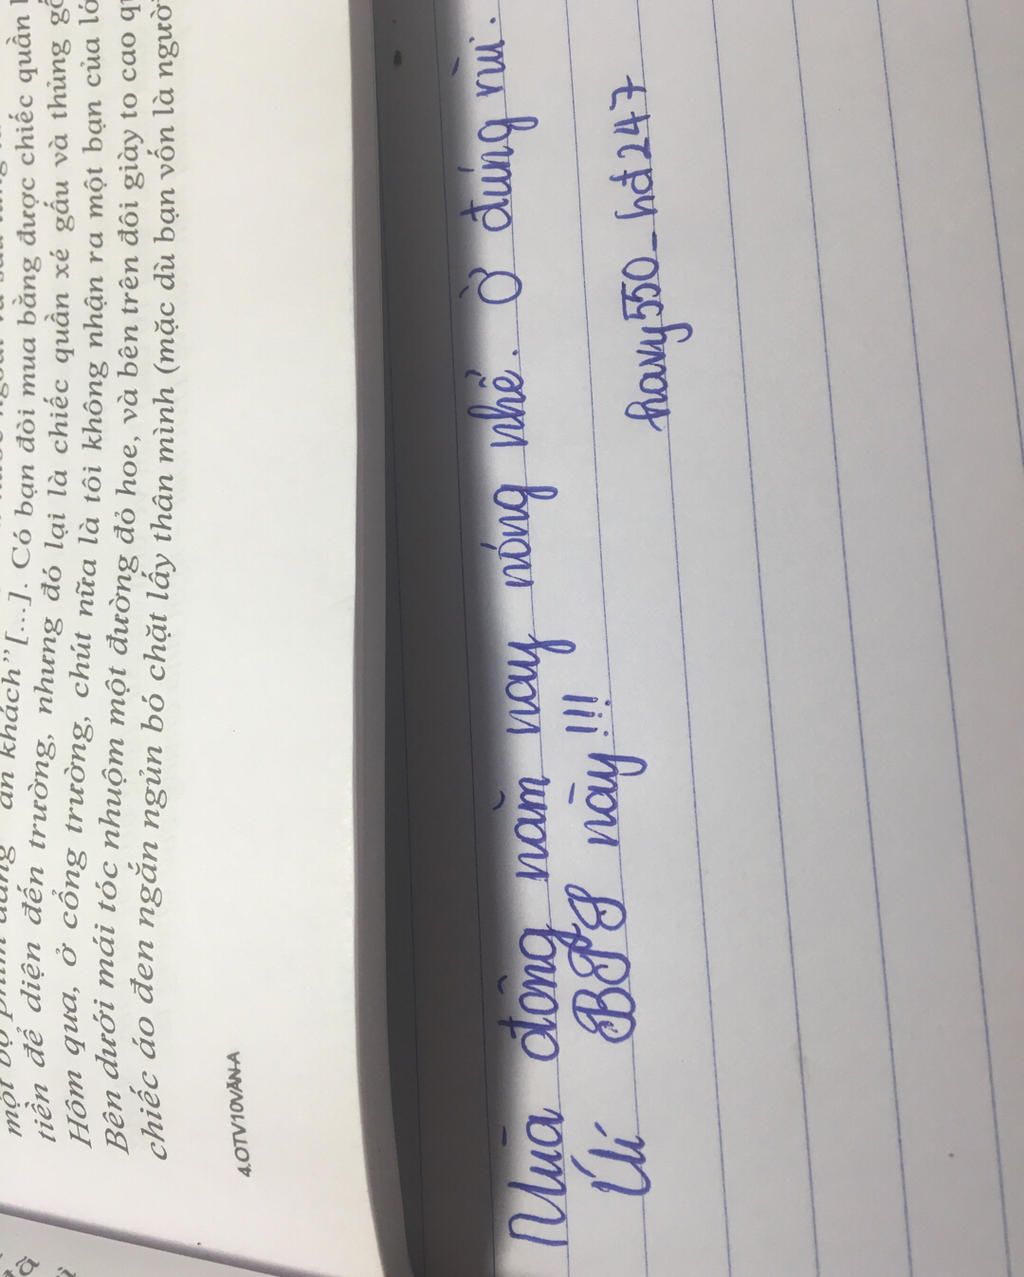 tiền để diện đến trường, nhưng đó lại là chiếc quần xé gấu và thủng
Hôm qua, ở cổng trường, chút nữa là tôi không nhận ra một bạn của
Bên dưới mái tóc nhuộm một đường đỏ hoe, và bên trên đôi giày to cao
chiếc áo đen ngắn ngủn bó chặt lấy thân mình (mặc dù bạn vốn là người
4.OTV10VĂN-A
Mùa đông năm nay nóng nhể. Ờ đúng rùi.
Úi BTS này!!!
havy550_hđ247